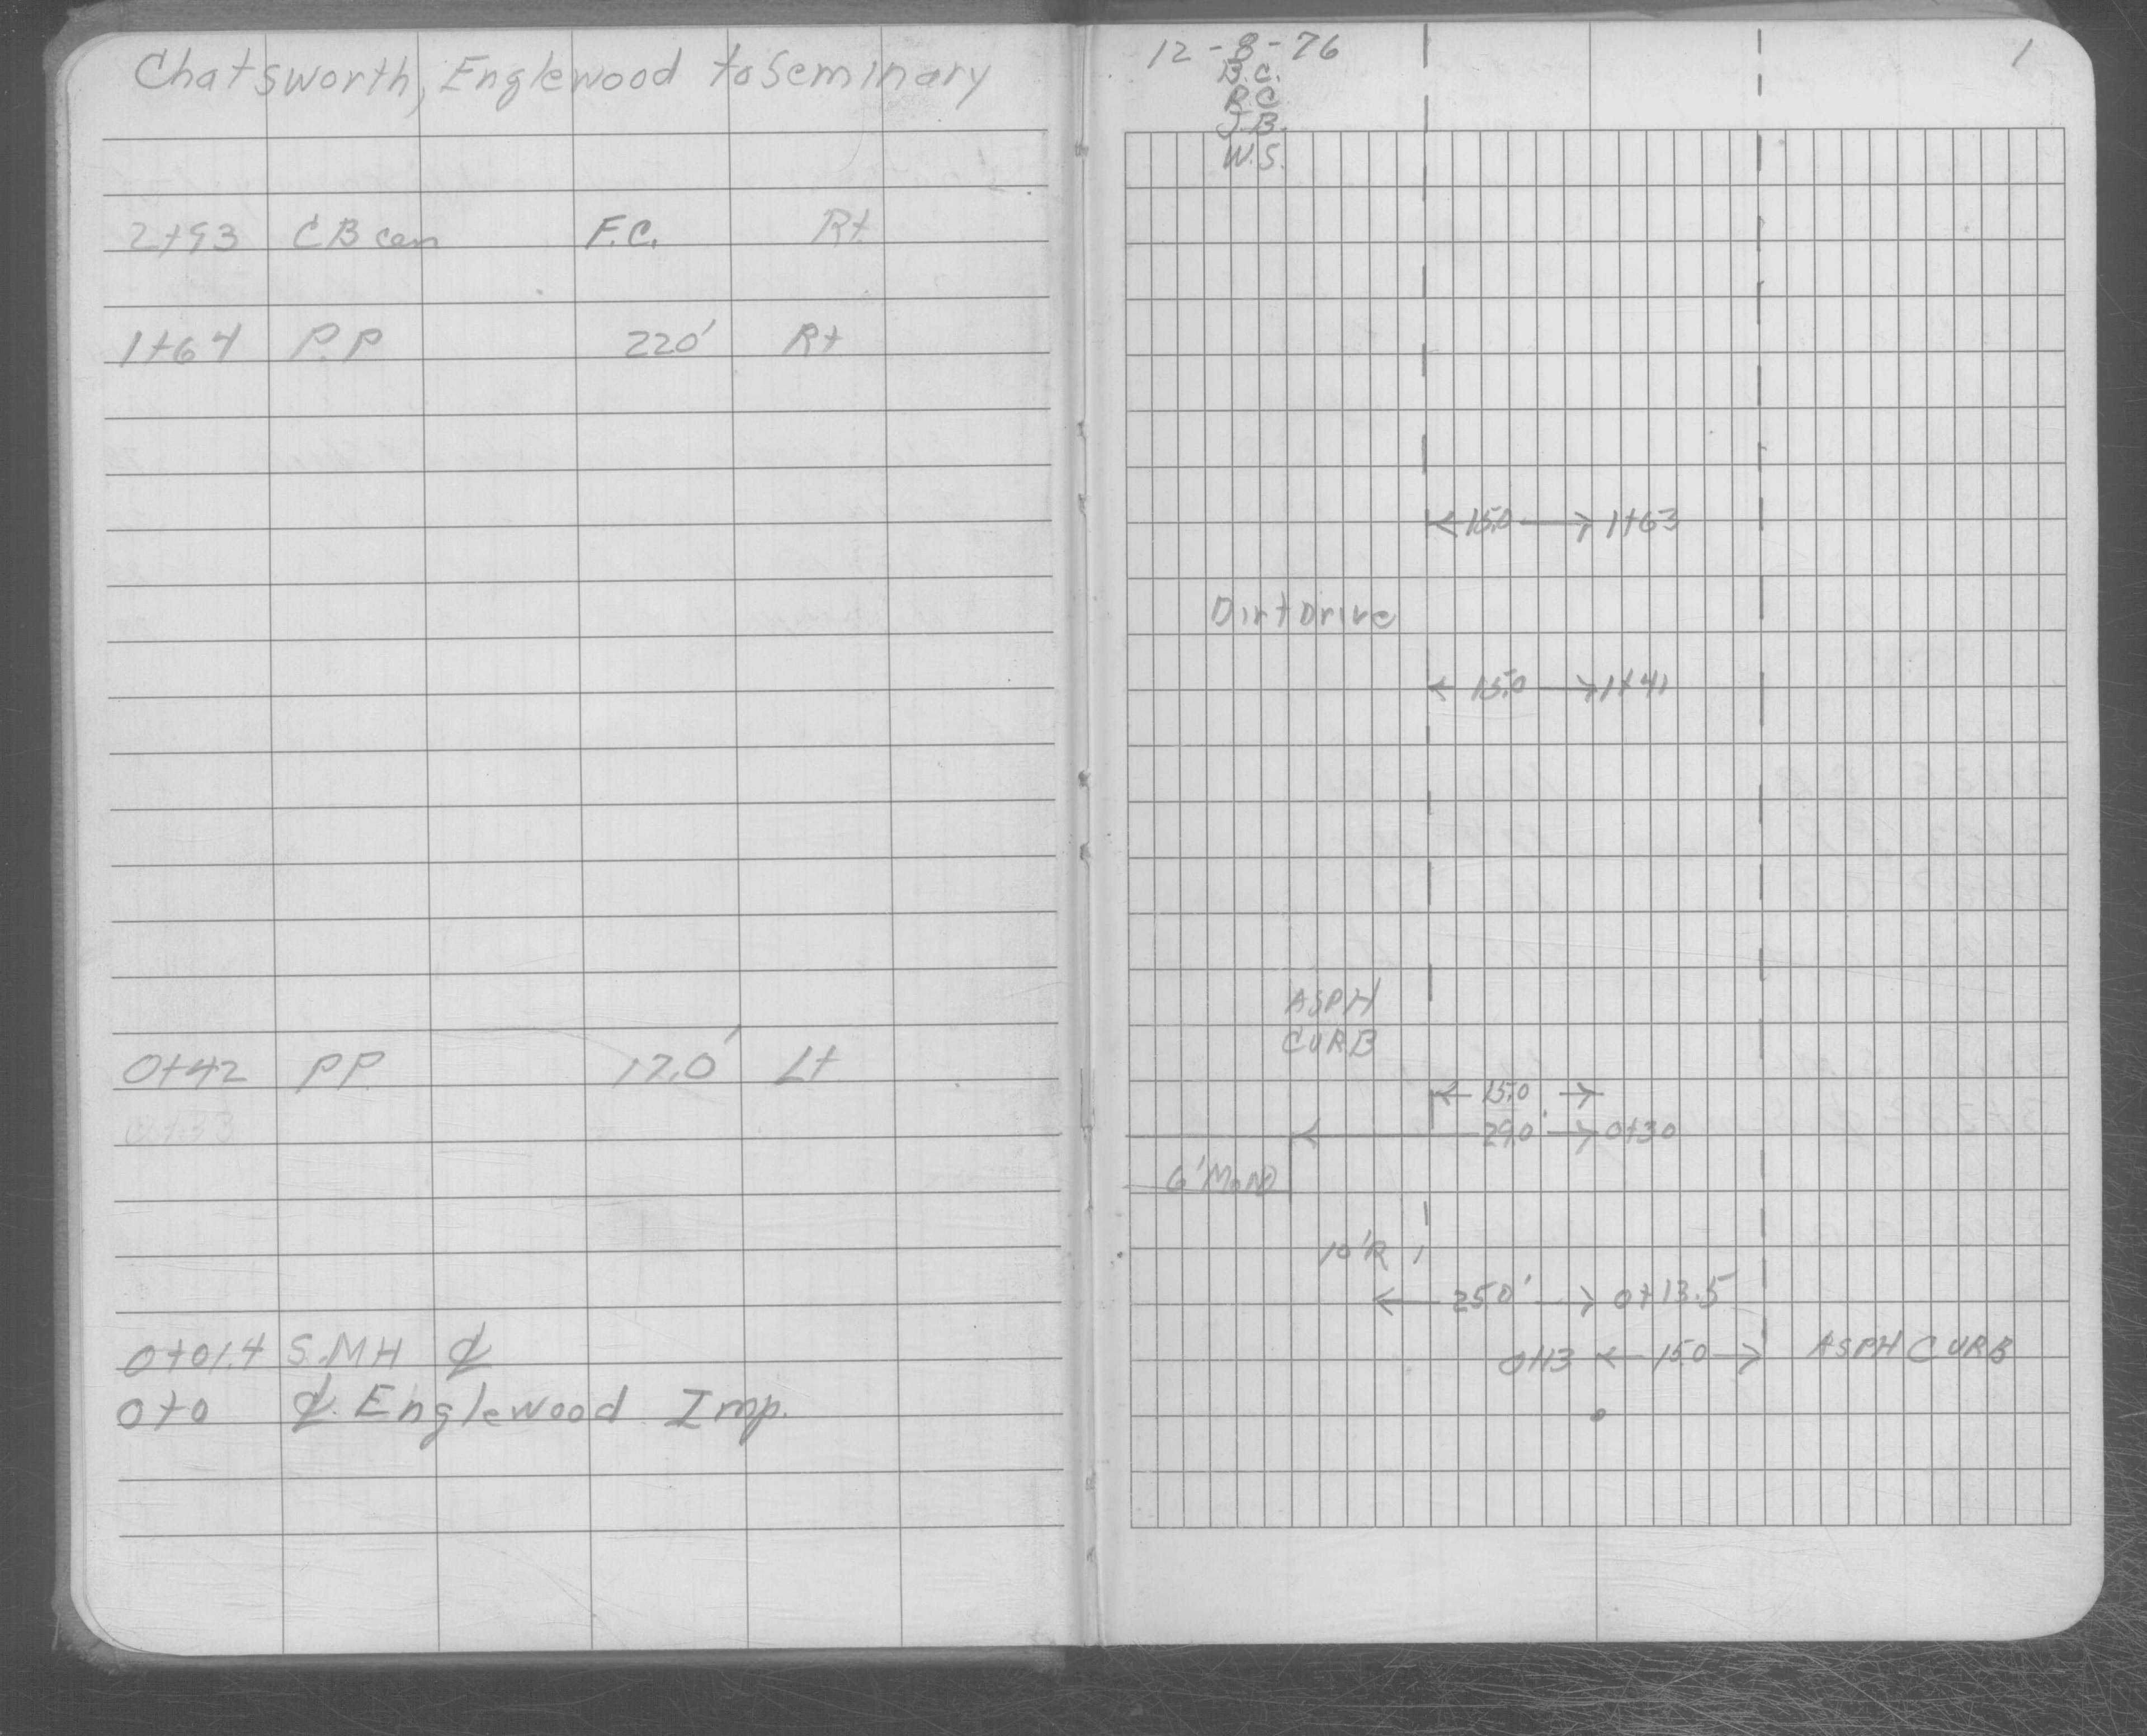 Chatsworth, Englewood to Seminary
2+93 CB cen F.C. Rt
1+64 P.P 220' Rt
0+42 PP 17.0' Lt
0+33
0+01.4 S.MH ℄
0+0 ℄ Englewood Imp.
12-8-76 1
B.C.
R.C.
J.B.
W.S.
15.0 1+63
Dirt Drive
15.0 1+41
ASPH
CURB
15.0
29.0 0+30
6' MONO
10'R
250' 0+13.5
0+13 150 ASPH CURB